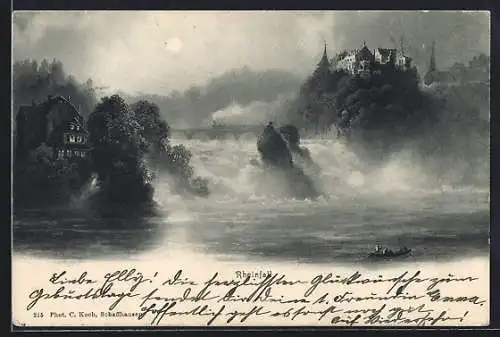 Rheinfall
Liebe Elly! Die herzlichsten Glückwünsche zum
Geburtstage sendet Dir Deine Freundin Emma,
Hoffentlich geht es Dir gut
Auf Wiedersehn!
215 Phot. C. Koch, Schaffhausen